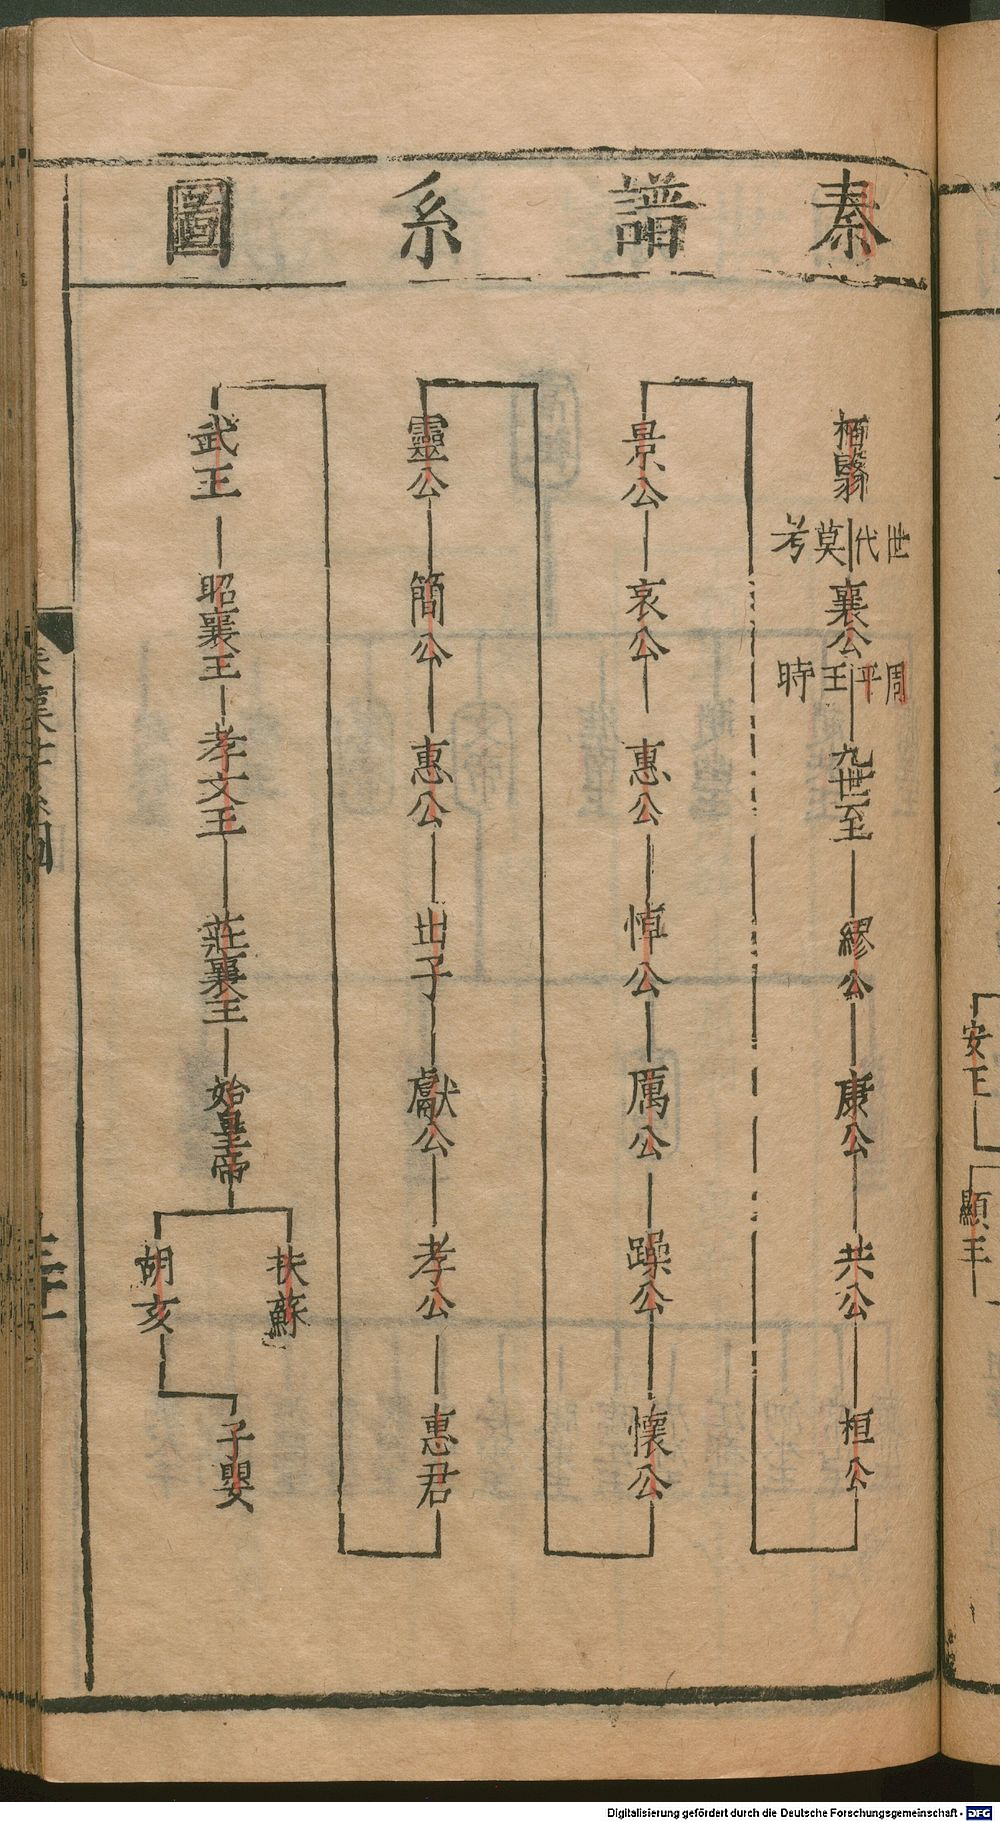 秦譜系圖
栢翳
世代莫考
襄公
周平王時
九世至
繆公
康公
共公
桓公
景公
哀公
惠公
悼公
厲公
躁公
懷公
靈公
簡公
惠公
出子
獻公
孝公
惠君
武王
昭襄王
孝文王
莊襄王
始皇帝
扶蘇
胡亥
子嬰
安王
顯王
Digitalisierung gefördert durch die Deutsche Forschungsgemeinschaft - DFG